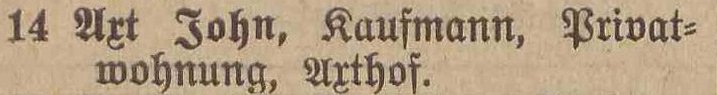 14 Axt John, Kaufmann, Privat-
wohnung, Axthof.